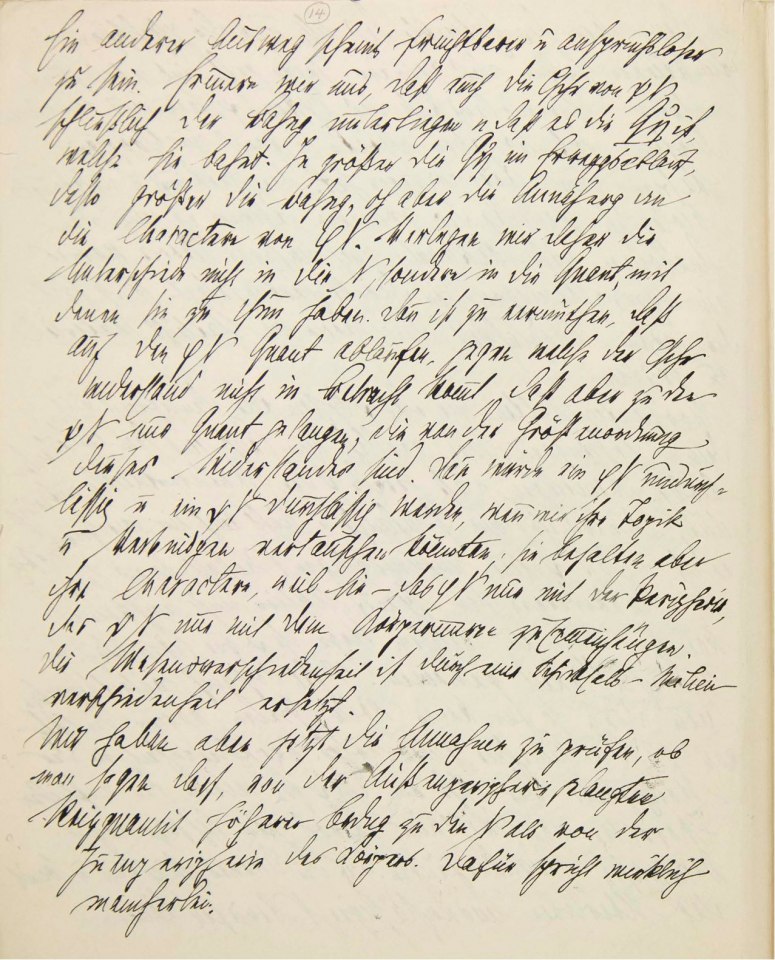 14
Ein anderer Ausweg scheint fruchtbarer u anspruchsloser
zu sein. Erinnern wir uns, daß auch die Cschr von ψN
schließlich der Bahng unterliegen u daß es die Qή ist,
welche sie bahnt. Je größer die Qή im Erreggsablauf,
desto größer die Bahng, dh aber die Annäherg an
die Charactere von φN. Verlegen wir daher die
Unterschiede nicht in die N, sondern in die Quant, mit
denen sie zu thun haben. Dan ist zu vermuthen, daß
auf den φN Quant ablaufen, gegen welche der Cschr
widerstand nicht in Betracht komt, daß aber zu den
ψN nur Quant gelangen, die von der Größenordnung
dieses Widerstandes sind. Dan würde ein φN undurch=
lässig u ein ψN durchlässig werden, wen wir ihre Topik
u Verbindgen vertauschen könnten; sie behalten aber
ihre Charactere, weil sie – das φN nur mit der Peripherie,
das ψN nur mit dem Körperinnern zusammenhängen.
Die Wesensverschiedenheit ist durch eine Schicksals – Milieu
verschiedenheit ersetzt.
Wir haben aber jetzt die Annahme zu prüfen, ob
man sagen darf, von der Außenperipherie gelangten
Reizquantit höherer Ordng zu den N als von der
Innenperipherie des Körpers. Dafür spricht wirklich
mancherlei.